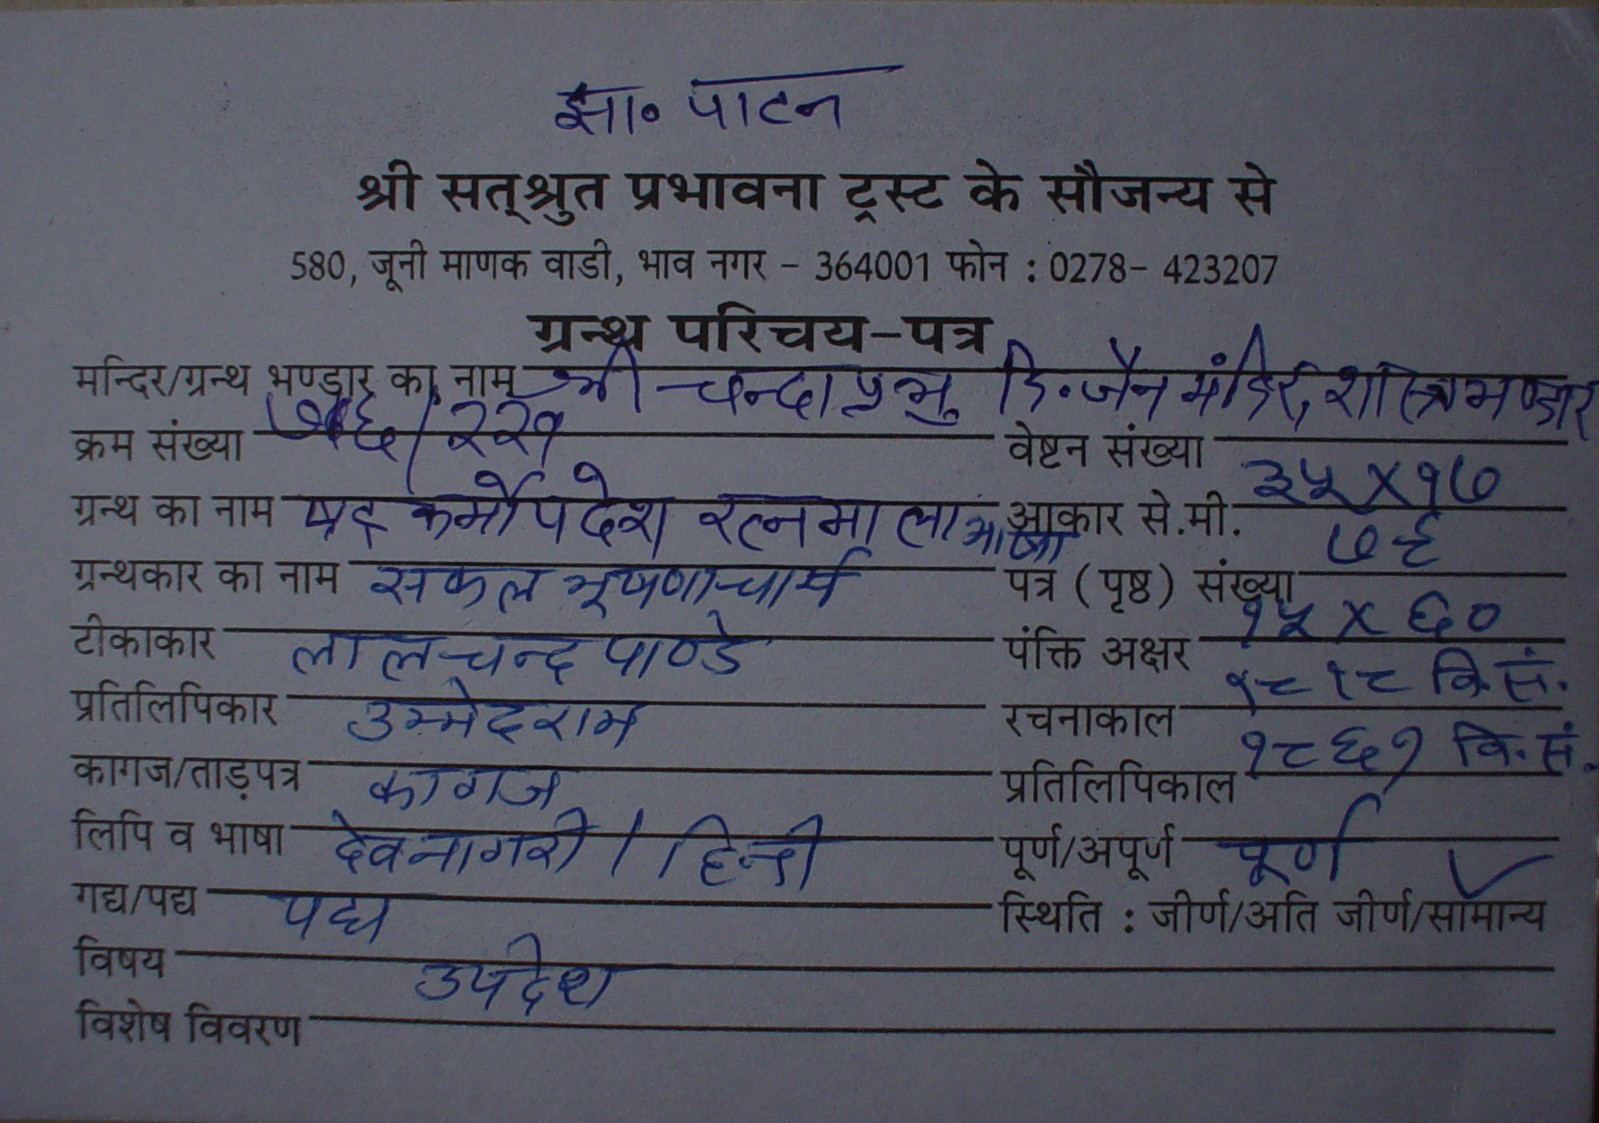 झा॰ पाटन
श्री सत्‌श्रुत प्रभावना ट्रस्ट के सौजन्य से
580, जूनी माणक वाडी, भाव नगर - 364001 फोन : 0278- 423207
ग्रन्थ परिचय-पत्र
मन्दिर/ग्रन्थ भण्डार का नाम श्री चन्दाप्रभु दि॰ जैन मंदिर, शास्त्र भण्डार
क्रम संख्या / २२१ वेष्टन संख्या
ग्रन्थ का नाम षट् कर्मोपदेश रत्नमाला भाषा आकार से.मी. ३५ X १७
ग्रन्थकार का नाम सकल भूषणाचार्य पत्र (पृष्ठ) संख्या
टीकाकार लालचन्द पाण्डे पंक्ति अक्षर १५ X ६०
प्रतिलिपिकार उम्मेदराम रचनाकाल १८१८ वि. सं.
कागज/ताड़पत्र कागज प्रतिलिपिकाल १८६१ वि. सं.
लिपि व भाषा देवनागरी / हिन्दी पूर्ण/अपूर्ण पूर्ण
गद्य/पद्य पद्य स्थिति : जीर्ण/अति जीर्ण/सामान्य ✓
विषय उपदेश
विशेष विवरण